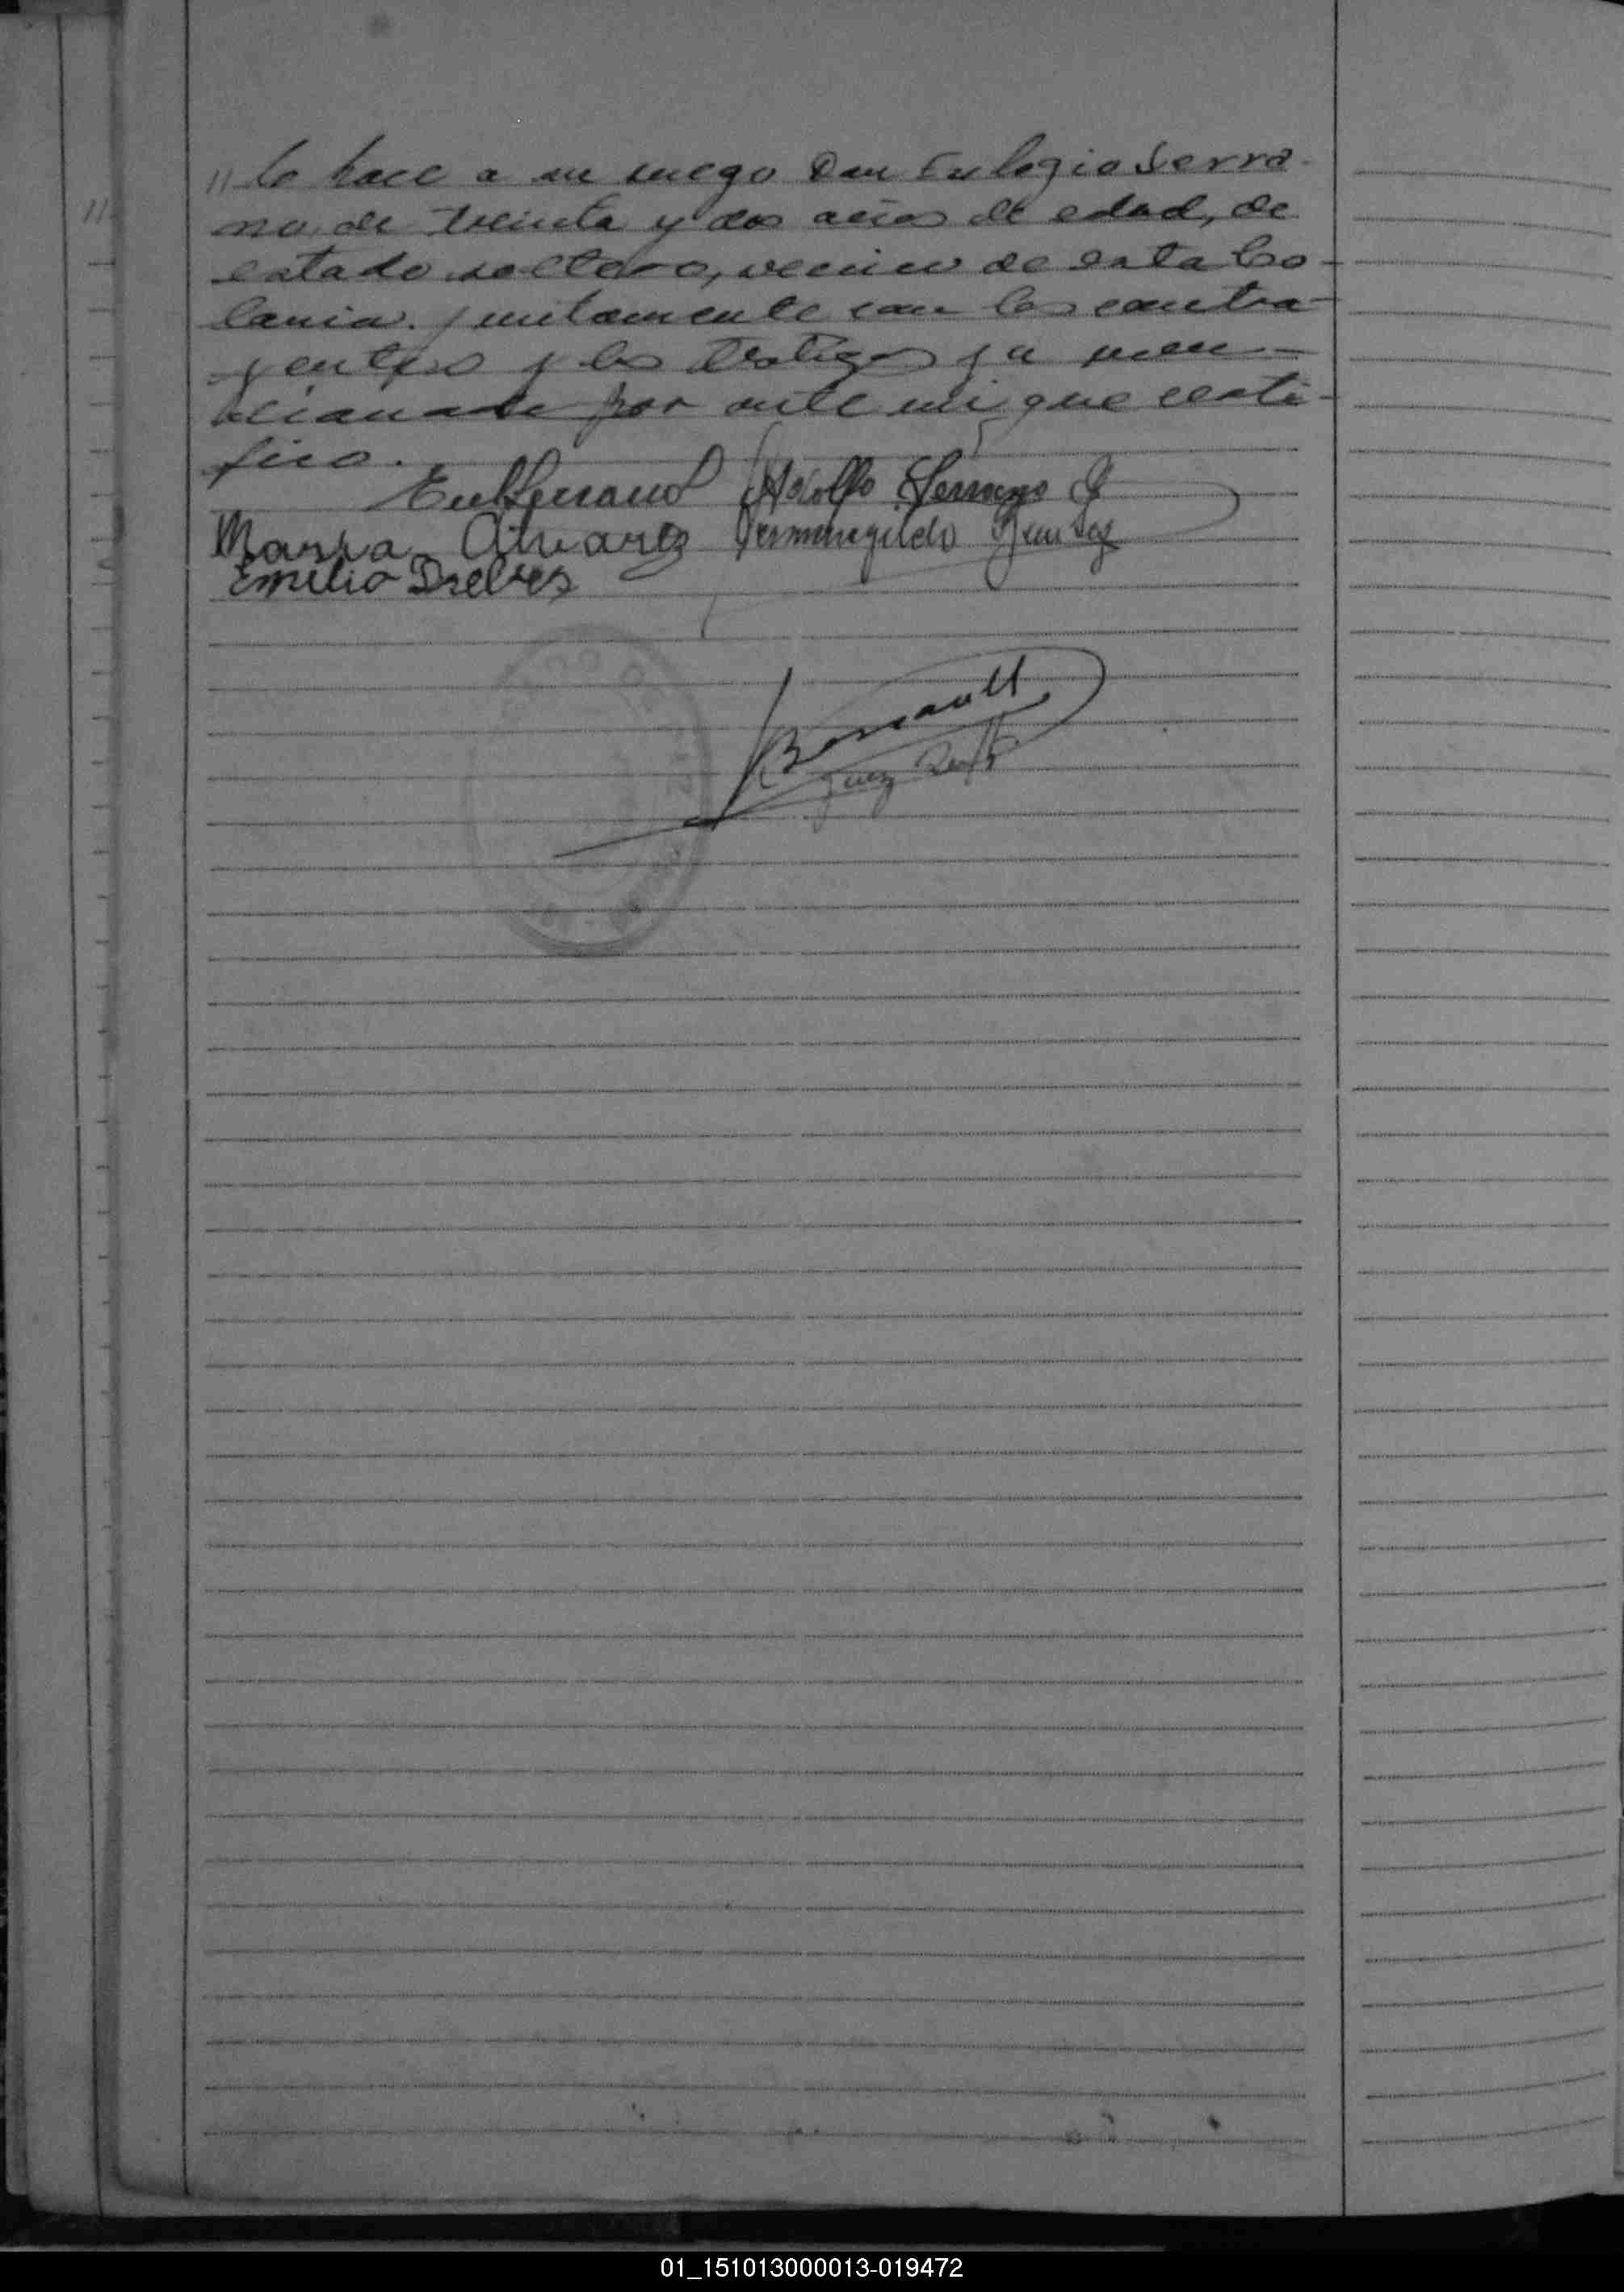 11
// lo hace a su ruego Don Eulogio Serra-
no de treinta y dos años de edad, de
estado soltero, vecino de esta Co-
lonia. juntamente con los contra-
yentes y los testigos ya men-
cionado por ante mi que certi-
fico.
Eul Serrano Adolfo Serrano G
Maria Alvarez Hermenegildo Benitez
Emilio Drebes
Juez
01_151013000013-019472